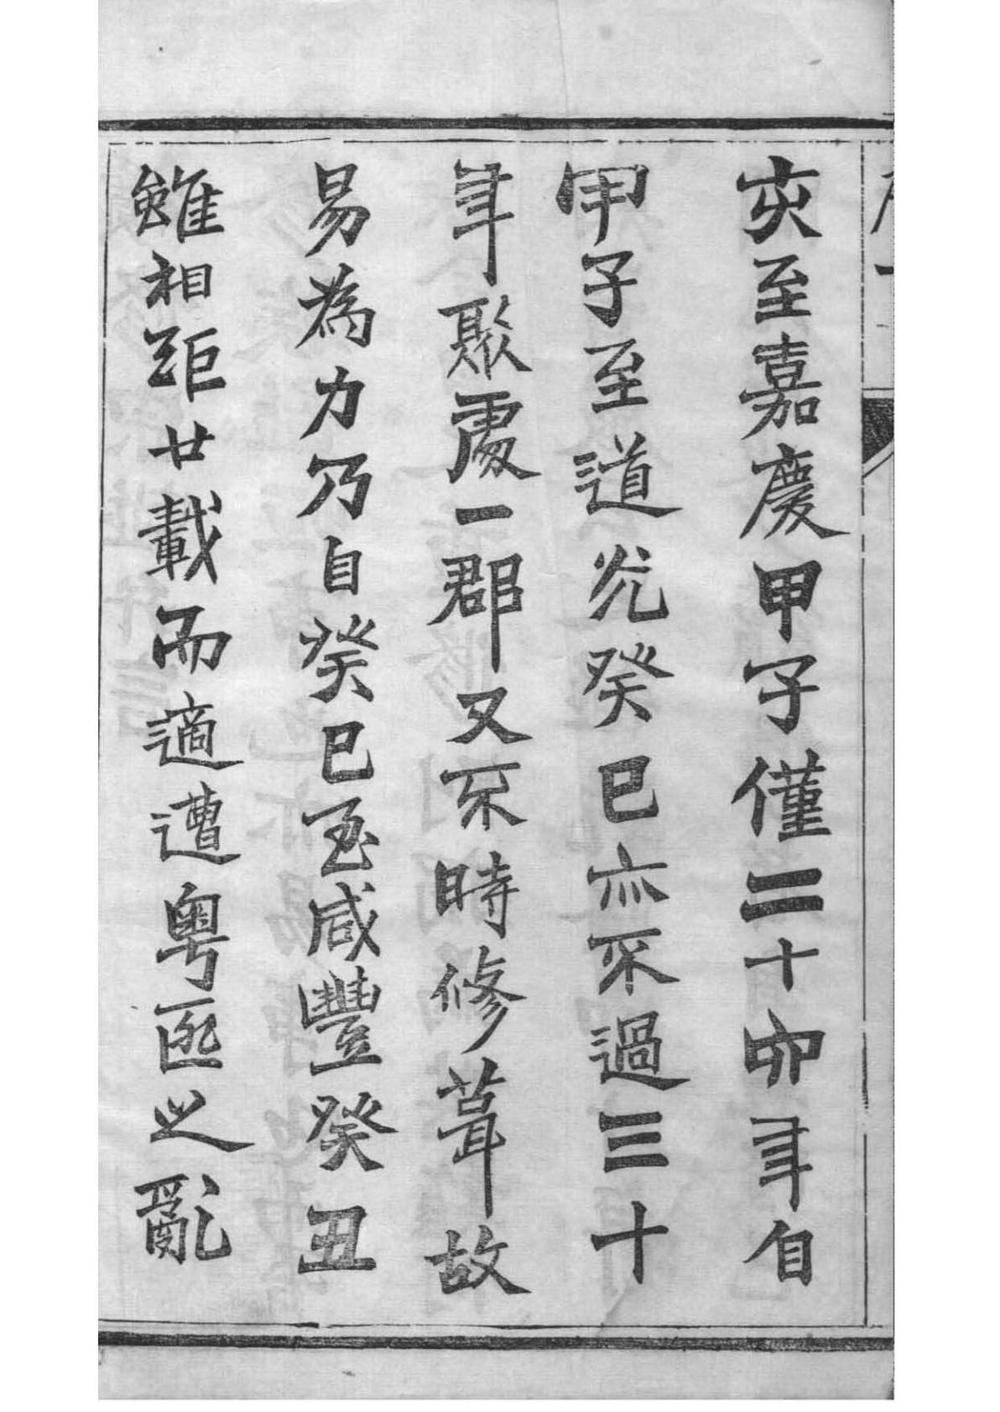 亥至嘉慶甲子僅二十四年自
甲子至道光癸巳亦不過三十
年聚處一郡又不時修葺故
易為力乃自癸巳至咸豐癸丑
雖相距廿載而適遭粵匪之亂